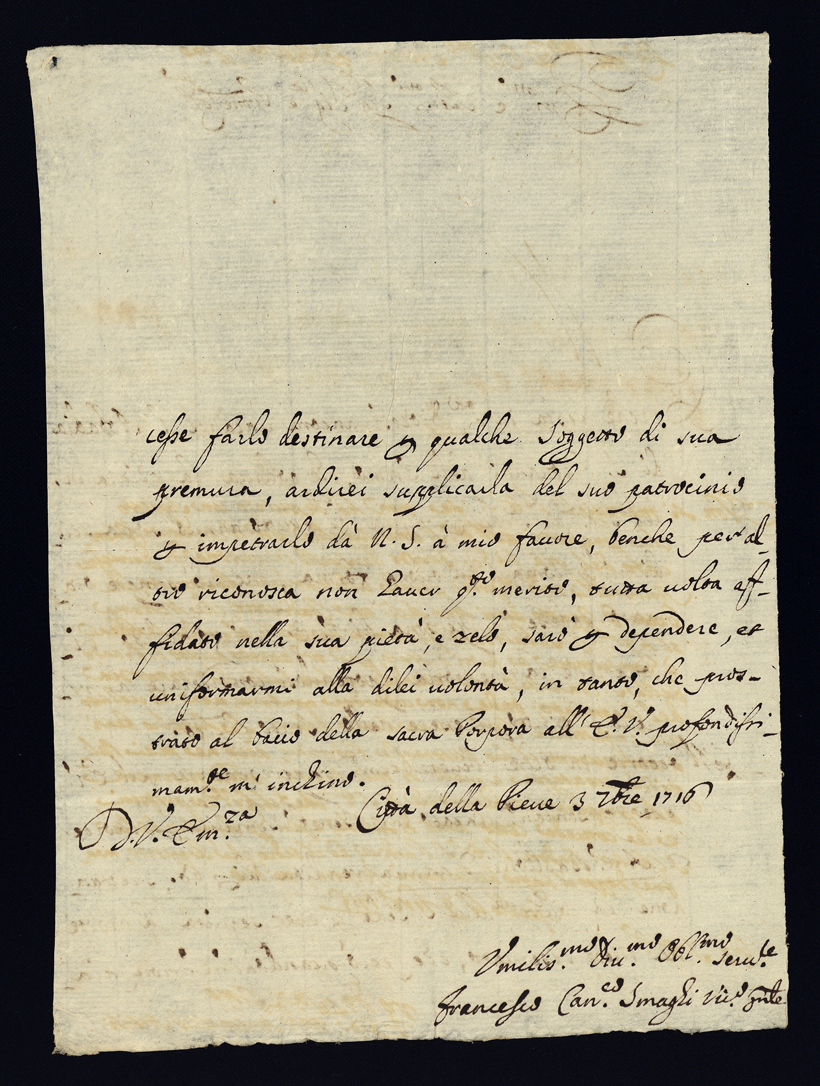 cesse farlo destinare p qualche soggetto di sua
premura, ardirei supplicarla del suo patrocinio
p impetrarlo dà N. S. à mio fauore, benche per al-
tro riconosca non hauer q.to merito, tutta uolta af-
fidato nella sua pietà, e zelo, sarò p dependere, et
uniformarmi alla dilei uolontà, in tanto, che pros-
trato al bacio della sacra Porpora all' E. V. profondissi-
mam.te m' inchino.
Città della Pieue 3 7bre 1716
D. V. Em.za
Vmilis.mo Diu.mo Obl.mo seru.e
Francesco Can.co Smaghi Vic.o